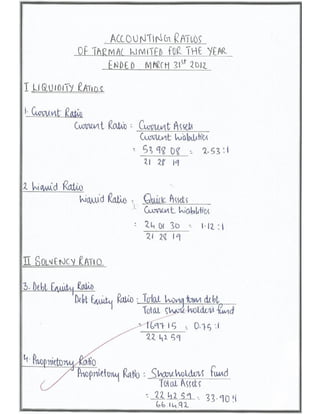 ACCOUNTING RATIOS
OF TARMAC LIMITED FOR THE YEAR
ENDED MARCH 31ST 2012
I LIQUIDITY RATIOS
1. Current Ratio
Current Ratio = Current Assets
Current Liabilities
= 53 98 08 = 2.53:1
21 28 19
2 Liquid Ratio
Liquid Ratio = Quick Assets
Current Liabilities
= 24 01 30 = 1.12:1
21 28 19
II SOLVENCY RATIO
3. Debt Equity Ratio
Debt Equity Ratio = Total Long term debt
Total shareholders fund
= 1697 15 = 0.75:1
22 42 59
4. Proprietory Ratio
Proprietory Ratio = Shareholders fund
Total Assets
= 22 42 59 = 33.90%
66 14 92